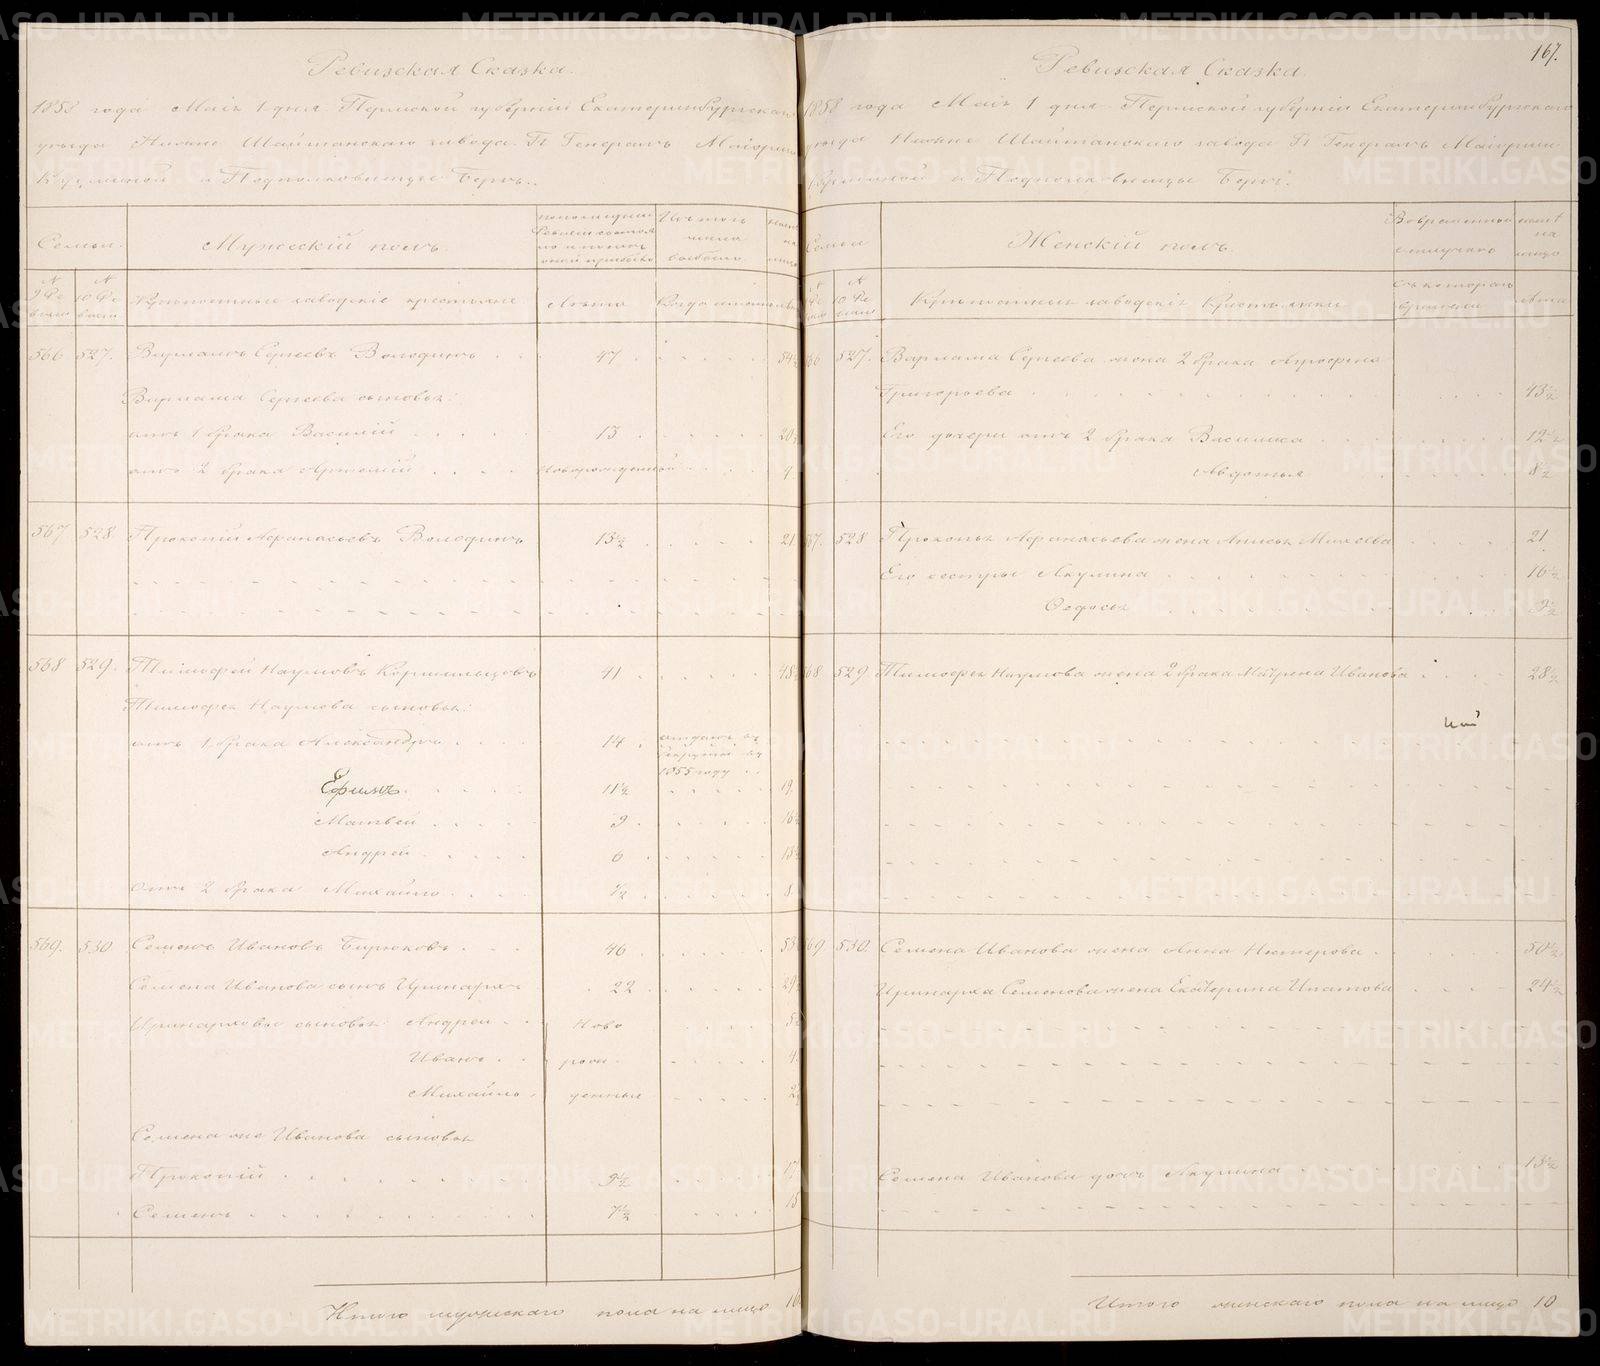 167.
Ревизская Сказка.
1858 года Маія 1 дня Пермской губерніи Екатеринбургскаго
уезда Нижне Шайтанскаго завода Г. Генералъ Маіорши
Кузминой и Подполковницы Бергъ.
Семьи. Мужескій полъ. Изъ того числа выбыло
№ 9 Ре визіи № 10 Ре визіи Крѣпостные заводскіе крестьяне Лѣта Когда именно
566 527. Варламъ Сергеевъ Володинъ 47 54½
Варлама Сергеева сыновья:
отъ 1 брака Василій 13 20½
отъ 2 брака Артемій Новорожденный 4
567 528 Прокопій Афанасьевъ Володинъ 13½ 21
568 529. Тимофей Наумовъ Кормильцовъ 41 48½
Тимофея Наумова сыновья:
отъ 1 брака Александръ 14 отданъ въ рекруты въ 1855 году
Ефимъ 11½ 19
Матвей 9 16½
Андрей 6 13½
Отъ 2 брака Михайло ½ 8
569. 530 Семенъ Ивановъ Бирюковъ 46 53½
Семена Иванова сынъ Иринархъ 22 29½
Иринарховы сыновья: Андрей Ново 5½
Иванъ рож 4
Михайло денные 2½
Семена же Иванова сыновья
Прокопій 9½ 17
Семенъ 7½ 15
Итого мужескаго пола на лицо
Ревизская Сказка
1858 года Маія 1 дня Пермской губерніи Екатеринбургскаго
уезда Нижне Шайтанскаго завода Г. Генералъ Маіорши
Кузминой и Подполковницы Бергъ.
Семьи Женскій полъ. Во временной отлучкѣ на лицо
10 Ре визіи Крѣпостныя заводскія Крестьянки Съ котораго времени Лѣта
527. Варлама Сергеева жена 2 брака Афросинья
Григорьева 43½
Его дочери отъ 2 брака Василиса 12½
Авдотья 8½
528 Прокопья Афанасьева жена Анисья Михеева 21
Его сестры Акулина 16½
Федосья 9½
529 Тимофея Наумова жена 2 брака Матрена Иванова 28½
530. Семена Иванова жена Анна Нестерова 50½
Иринарха Семенова жена Екатерина Ипатова 24½
Семена Иванова дочь Акулина 13½
Итого женскаго пола на лицо 10
METRIKI.GASO-URAL.RU